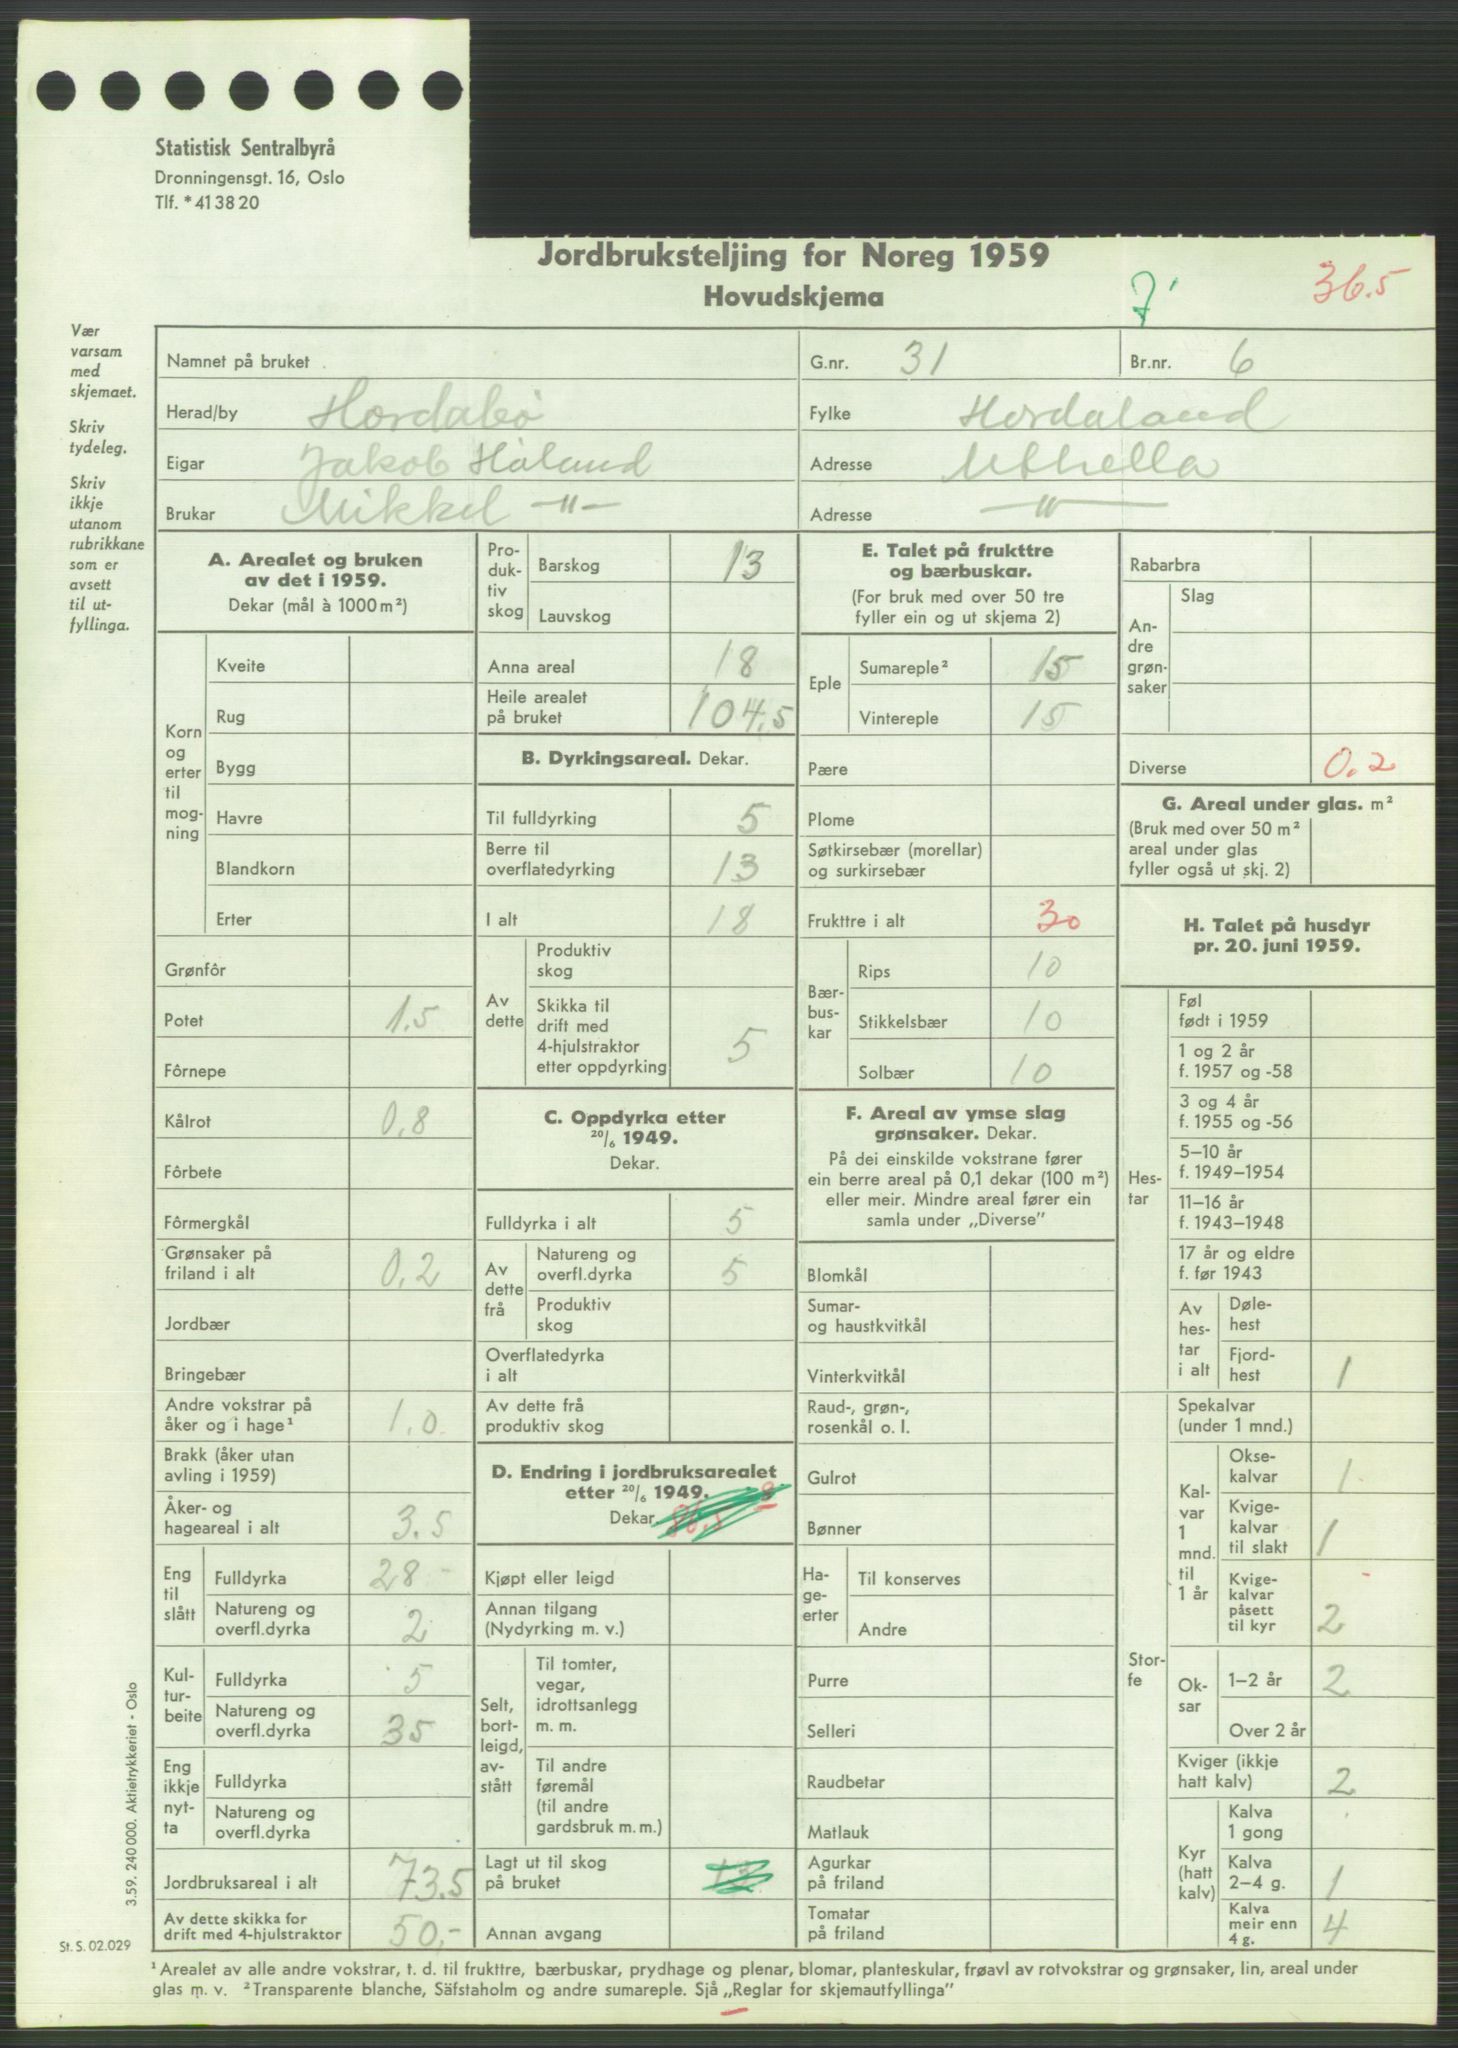 Statistisk Sentralbyrå
Dronningensgt. 16, Oslo
Tlf. * 41 38 20
Jordbruksteljing for Noreg 1959
Hovudskjema
7
36.5
Vær
varsam
med
skjemaet.
Skriv
tydeleg.
Skriv
ikkje
utanom
rubrikkane
som er
avsett
til ut-
fyllinga.
Namnet på bruket
G.nr. 31
Br.nr. 6
Herad/by Hordabø
Fylke Hordaland
Eigar Jakob Håland
Adresse
Brukar Mikkel —"—
Adresse —"—
A. Arealet og bruken
av det i 1959.
Dekar (mål à 1000 m²)
Korn
og
erter
til
mog-
ning
Kveite
Rug
Bygg
Havre
Blandkorn
Erter
Grønfôr
Potet 1.5
Fôrnepe
Kålrot 0,8
Fôrbete
Fôrmergkål
Grønsaker på
friland i alt 0,2
Jordbær
Bringebær
Andre vokstrar på
åker og i hage¹ 1.0
Brakk (åker utan
avling i 1959)
Åker- og
hageareal i alt 3.5
Eng
til
slått
Fulldyrka 28 -
Natureng og
overfl.dyrka 2
Kul-
tur-
beite
Fulldyrka 5
Natureng og
overfl.dyrka 35
Eng
ikkje
nyt-
ta
Fulldyrka
Natureng og
overfl.dyrka
Jordbruksareal i alt 73.5
Av dette skikka for
drift med 4-hjulstraktor 50,-
Pro-
duk-
tiv
skog
Barskog 13
Lauvskog
Anna areal 18
Heile arealet
på bruket 104,5
B. Dyrkingsareal. Dekar.
Til fulldyrking 5
Berre til
overflatedyrking 13
I alt 18
Av
dette
Produktiv
skog
Skikka til
drift med
4-hjulstraktor
etter oppdyrking 5
C. Oppdyrka etter
20/6 1949.
Dekar.
Fulldyrka i alt 5
Av
dette
frå
Natureng og
overfl.dyrka 5
Produktiv
skog
Overflatedyrka
i alt
Av dette frå
produktiv skog
D. Endring i jordbruksarealet
etter 20/6 1949.
Dekar.
Kjøpt eller leigd
Annan tilgang
(Nydyrking m. v.)
Selt,
bort-
leigd,
av-
stått
Til tomter,
vegar,
idrottsanlegg
m. m.
Til andre
føremål
(til andre
gardsbruk m. m.)
Lagt ut til skog
på bruket 13
Annan avgang
E. Talet på frukttre
og bærbuskar.
(For bruk med over 50 tre
fyller ein og ut skjema 2)
Eple
Sumareple² 15
Vintereple 15
Pære
Plome
Søtkirsebær (morellar)
og surkirsebær
Frukttre i alt 30
Bær-
bus-
kar
Rips 10
Stikkelsbær 10
Solbær 10
F. Areal av ymse slag
grønsaker. Dekar.
På dei einskilde vokstrane fører
ein berre areal på 0,1 dekar (100 m²)
eller meir. Mindre areal fører ein
samla under „Diverse”
Blomkål
Sumar-
og haustkvitkål
Vinterkvitkål
Raud-, grøn-,
rosenkål o. l.
Gulrot
Bønner
Ha-
ge-
erter
Til konserves
Andre
Purre
Selleri
Raudbetar
Matlauk
Agurkar
på friland
Tomatar
på friland
Rabarbra
An-
dre
grøn-
saker
Slag
Diverse 0.2
G. Areal under glas. m²
(Bruk med over 50 m²
areal under glas
fyller også ut skj. 2)
H. Talet på husdyr
pr. 20. juni 1959.
Hes-
tar
Føl
født i 1959
1 og 2 år
f. 1957 og -58
3 og 4 år
f. 1955 og -56
5–10 år
f. 1949–1954
11–16 år
f. 1943–1948
17 år og eldre
f. før 1943
Av
hes-
tar
i alt
Døle-
hest
Fjord-
hest 1
Stor-
fe
Spekalvar
(under 1 mnd.)
Kal-
var
1
mnd.
til
1 år
Okse-
kalvar 1
Kvige-
kalvar
til slakt 1
Kvige-
kalvar
påsett
til kyr 2
Ok-
sar
1–2 år 2
Over 2 år
Kviger (ikkje
hatt kalv) 2
Kyr
(hatt
kalv)
Kalva
1 gong
Kalva
2–4 g. 1
Kalva
meir enn
4 g. 4
3.59. 240 000. Aktietrykkeriet - Oslo
St. S. 02.029
¹ Arealet av alle andre vokstrar, t. d. til frukttre, bærbuskar, prydhage og plenar, blomar, planteskular, frøavl av rotvokstrar og grønsaker, lin, areal under
glas m. v. ² Transparente blanche, Säfstaholm og andre sumareple. Sjå „Reglar for skjemautfyllinga”